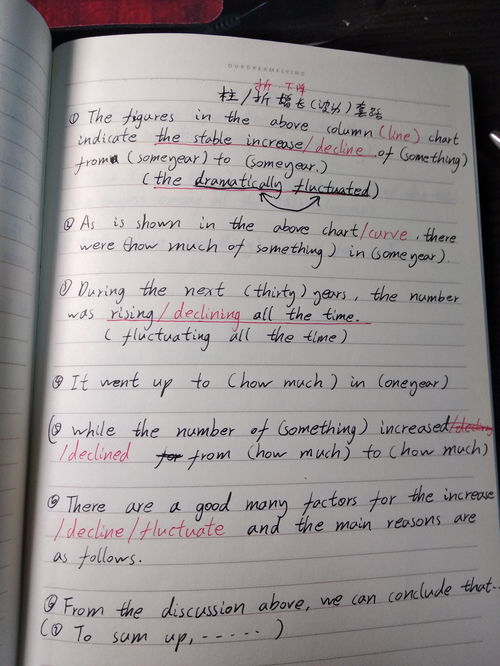 OURDREAMFLYING
折 下降
柱/折 增长(波动)套路
① The figures in the above column (line) chart
indicate the stable increase/decline of (something)
from (someyear) to (someyear.)
(the dramatically fluctuated)
② As is shown in the above chart/curve, there
were (how much of something) in (someyear).
③ During the next (thirty) years, the number
was rising/declining all the time.
(fluctuating all the time)
④ It went up to (how much) in (oneyear)
(⑤ while the number of (something) increased
/declined from (how much) to (how much)
⑥ There are a good many factors for the increase
/decline/fluctuate and the main reasons are
as follows.
From the discussion above, we can conclude that--
To sum up, -----)